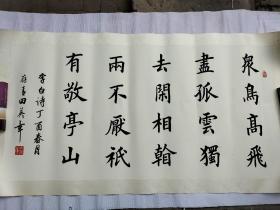 衆鳥高飛
盡孤雲獨
去閑相看
兩不厭祇
有敬亭山
李白诗丁酉春月
田英章